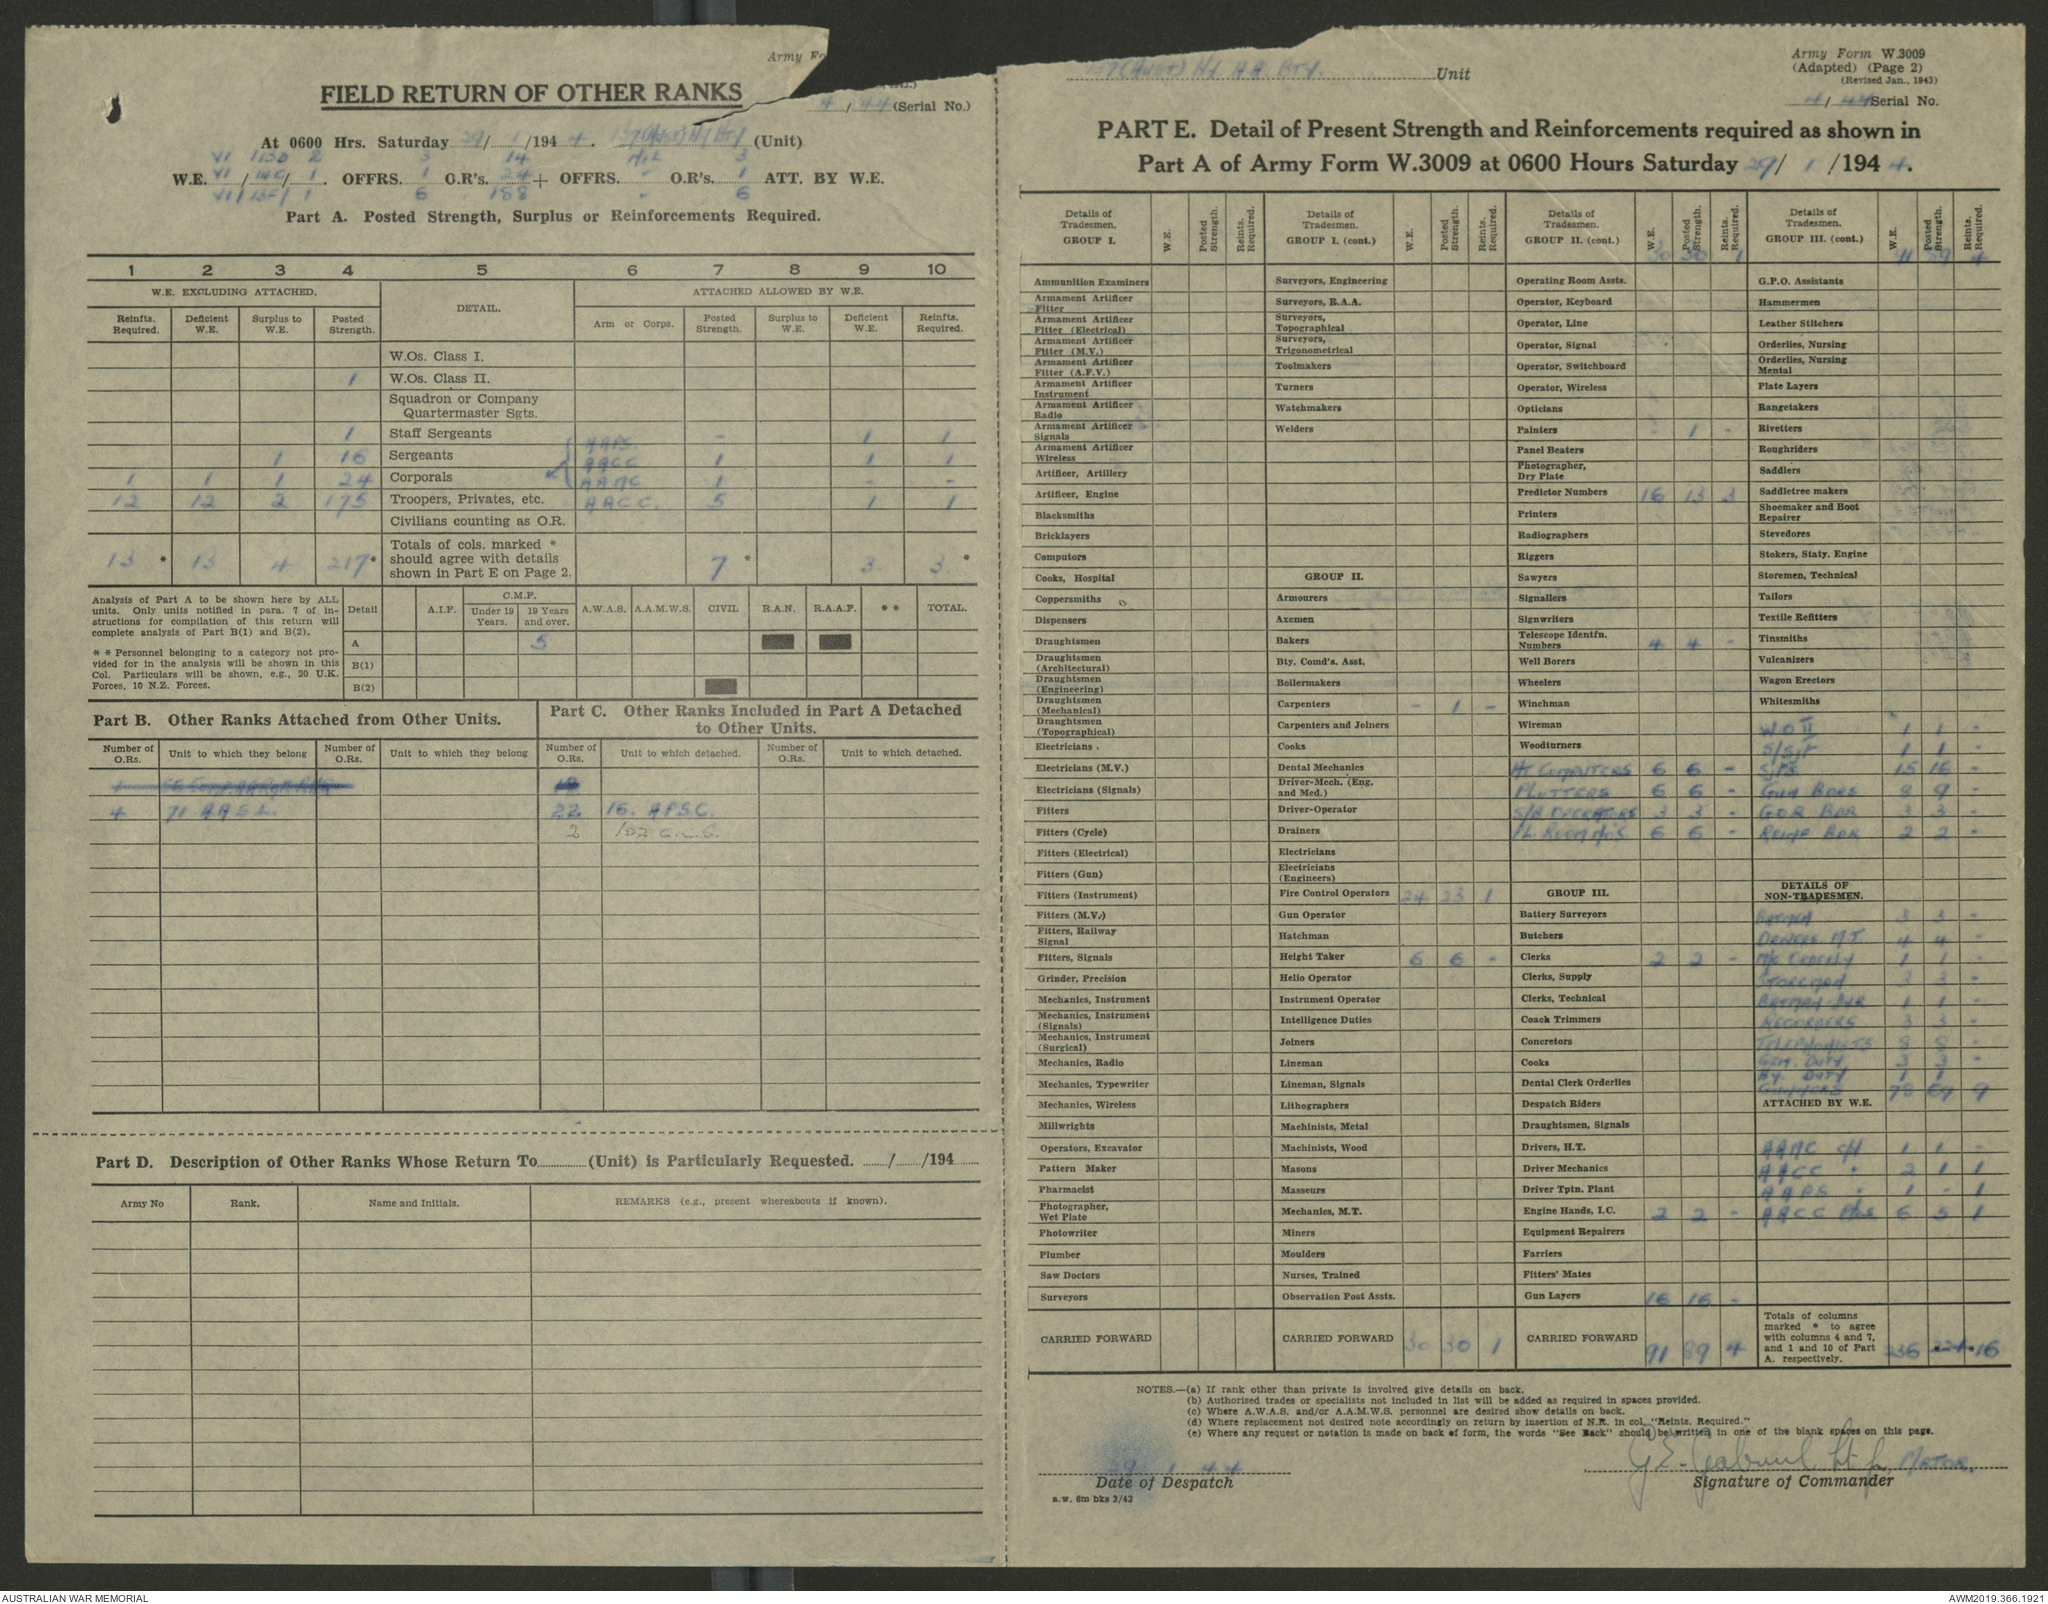 Army Fo
FIELD RETURN OF OTHER RANKS
4 / 44 (Serial No.)
At 0600 Hrs. Saturday 29/ 1 /194 4. 137 (Aust) Hy Bty (Unit)
VI 113D 2 3 14 NIL 3
W.E. VI / 14C / 1. OFFRS. 1 O.R's. 24 + OFFRS. - O.R's. 1 ATT. BY W.E.
VI / 13F/ 1 6 188 - 6
Part A. Posted Strength, Surplus or Reinforcements Required.
1 2 3 4 5 6 7 8 9 10
W.E. EXCLUDING ATTACHED. DETAIL. ATTACHED ALLOWED BY W.E.
Reinfts. Required. Deficient W.E. Surplus to W.E. Posted Strength. Arm or Corps. Posted Strength. Surplus to W.E. Deficient W.E. Reinfts. Required.
W.Os. Class I.
1 W.Os. Class II.
Squadron or Company
Quartermaster Sgts.
1 Staff Sergeants AAPS. - 1 1
1 16 Sergeants AACC 1 1 1
1 1 1 24 Corporals AAMC 1 - -
12 12 2 175 Troopers, Privates, etc. AACC. 5 1 1
Civilians counting as O.R.
13 * 13 4 217 * Totals of cols. marked * should agree with details shown in Part E on Page 2. 7 * 3 3 *
Analysis of Part A to be shown here by ALL
units. Only units notified in para. 7 of in-
structions for compilation of this return will
complete analysis of Part B(1) and B(2).
* * Personnel belonging to a category not pro-
vided for in the analysis will be shown in this
Col. Particulars will be shown, e.g., 20 U.K.
Forces, 10 N.Z. Forces.
Detail A.I.F. C.M.F. Under 19 Years. 19 Years and over. A.W.A.S. A.A.M.W.S. CIVIL R.A.N. R.A.A.F. * * TOTAL.
A 5
B(1)
B(2)
Part B. Other Ranks Attached from Other Units.
Part C. Other Ranks Included in Part A Detached
to Other Units.
Number of O.Rs. Unit to which they belong Number of O.Rs. Unit to which they belong Number of O.Rs. Unit to which detached. Number of O.Rs. Unit to which detached.
4 71 A.A.S.L. 22 16. A.P.S.C.
2 102 C.C.S.
Part D. Description of Other Ranks Whose Return To (Unit) is Particularly Requested. / /194
Army No Rank. Name and Initials. REMARKS (e.g., present whereabouts if known).
137 (Aust) Hy. A.A. Bty. Unit
Army Form W.3009
(Adapted) (Page 2)
(Revised Jan., 1943)
4/ 44 Serial No.
PART E. Detail of Present Strength and Reinforcements required as shown in
Part A of Army Form W.3009 at 0600 Hours Saturday 29/ 1 /194 4.
Details of Tradesmen. GROUP I. W.E. Posted Strength. Reints. Required.
Ammunition Examiners
Armament Artificer Fitter
Armament Artificer Fitter (Electrical)
Armament Artificer Fitter (M.V.)
Armament Artificer Fitter (A.F.V.)
Armament Artificer Instrument
Armament Artificer Radio
Armament Artificer Signals
Armament Artificer Wireless
Artificer, Artillery
Artificer, Engine
Blacksmiths
Bricklayers
Computors
Cooks, Hospital
Coppersmiths
Dispensers
Draughtsmen
Draughtsmen (Architectural)
Draughtsmen (Engineering)
Draughtsmen (Mechanical)
Draughtsmen (Topographical)
Electricians
Electricians (M.V.)
Electricians (Signals)
Fitters
Fitters (Cycle)
Fitters (Electrical)
Fitters (Gun)
Fitters (Instrument)
Fitters (M.V.)
Fitters, Railway Signal
Fitters, Signals
Grinder, Precision
Mechanics, Instrument
Mechanics, Instrument (Signals)
Mechanics, Instrument (Surgical)
Mechanics, Radio
Mechanics, Typewriter
Mechanics, Wireless
Millwrights
Operators, Excavator
Pattern Maker
Pharmacist
Photographer, Wet Plate
Photowriter
Plumber
Saw Doctors
Surveyors
CARRIED FORWARD
Details of Tradesmen. GROUP I. (cont.) W.E. Posted Strength. Reints. Required.
Surveyors, Engineering
Surveyors, R.A.A.
Surveyors, Topographical
Surveyors, Trigonometrical
Toolmakers
Turners
Watchmakers
Welders
GROUP II.
Armourers
Axemen
Bakers
Bty. Comd's. Asst.
Boilermakers
Carpenters - 1 -
Carpenters and Joiners
Cooks
Dental Mechanics
Driver-Mech. (Eng. and Med.)
Driver-Operator
Drainers
Electricians
Electricians (Engineers)
Fire Control Operators 24 23 1
Gun Operator
Hatchman
Height Taker 6 6 -
Helio Operator
Instrument Operator
Intelligence Duties
Joiners
Lineman
Lineman, Signals
Lithographers
Machinists, Metal
Machinists, Wood
Masons
Masseurs
Mechanics, M.T.
Miners
Moulders
Nurses, Trained
Observation Post Assts.
CARRIED FORWARD 30 30 1
Details of Tradesmen. GROUP II. (cont.) W.E. Posted Strength. Reints. Required.
30 30 1
Operating Room Assts.
Operator, Keyboard
Operator, Line
Operator, Signal
Operator, Switchboard
Operator, Wireless
Opticians
Painters - 1 -
Panel Beaters
Photographer, Dry Plate
Predictor Numbers 16 13 3
Printers
Radiographers
Riggers
Sawyers
Signallers
Signwriters
Telescope Identfn. Numbers 4 4 -
Well Borers
Wheelers
Winchman
Wireman
Woodturners
HT COMPUTERS 6 6 -
PLOTTERS 6 6 -
S/R OPERATORS 3 3 -
6 6 -
GROUP III.
Battery Surveyors
Butchers
Clerks 2 2 -
Clerks, Supply
Clerks, Technical
Coach Trimmers
Concretors
Cooks
Dental Clerk Orderlies
Despatch Riders
Draughtsmen, Signals
Drivers, H.T.
Driver Mechanics
Driver Tptn. Plant
Engine Hands, I.C. 2 2 -
Equipment Repairers
Farriers
Fitters' Mates
Gun Layers 16 16 -
CARRIED FORWARD 91 89 4
Details of Tradesmen. GROUP III. (cont.) W.E. Posted Strength. Reints. Required.
91 89 4
G.P.O. Assistants
Hammermen
Leather Stitchers
Orderlies, Nursing
Orderlies, Nursing Mental
Plate Layers
Rangetakers
Rivetters
Roughriders
Saddlers
Saddletree makers
Shoemaker and Boot Repairer
Stevedores
Stokers, Staty. Engine
Storemen, Technical
Tailors
Textile Refitters
Tinsmiths
Vulcanizers
Wagon Erectors
Whitesmiths
W O II 1 1 -
S/Sgt 1 1 -
Sgts. 15 16 -
GUN BDRS 8 9 -
G.O.R BDR 3 3 -
BDR 2 2 -
DETAILS OF NON-TRADESMEN.
BATMEN 3 3 -
DRIVERS M T 4 4 -
M/C ORDERLY 1 1 -
STOREMAN 3 3 -
BATMAN DVR 1 1 -
RECORDERS 3 3 -
TELEPHONISTS 8 8 -
GEN. DUTY 3 3 -
HY. DUTY 1 1
GUNNERS 78 67 9
ATTACHED BY W.E.
AAMC 1 1 -
AACC " 2 1 1
AAPS " 1 - 1
AACC Ptes 6 5 1
Totals of columns marked * to agree with columns 4 and 7, and 1 and 10 of Part A. respectively. 236 *224 *16
NOTES.—(a) If rank other than private is involved give details on back.
(b) Authorised trades or specialists not included in list will be added as required in spaces provided.
(c) Where A.W.A.S. and/or A.A.M.W.S. personnel are desired show details on back.
(d) Where replacement not desired note accordingly on return by insertion of N.R. in col. "Reints. Required."
(e) Where any request or notation is made on back of form, the words "See Back" should be written in one of the blank spaces on this page.
29 1 44
Date of Despatch
MAJOR.
Signature of Commander
a.w. 6m bks 3/43
AUSTRALIAN WAR MEMORIAL
AWM2019.366.1921